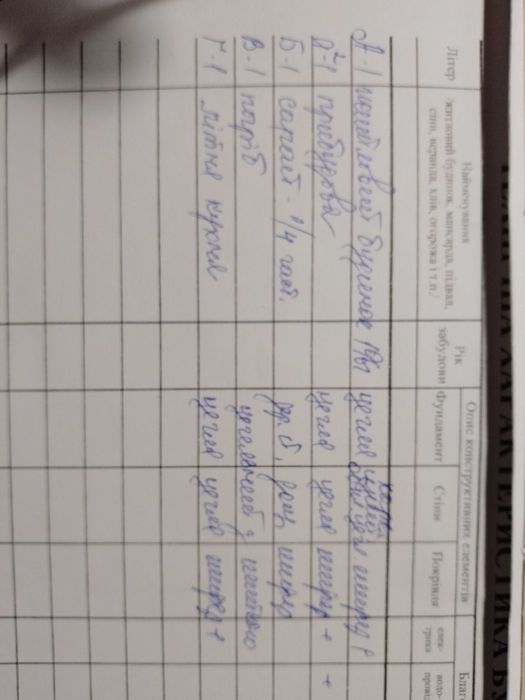 ХАРАКТЕРИСТИКА БУ
Літер
Найменування
/житловий будинок, мансарда, підвал,
сіни, веранда, хлів, огорожа і т.п./
Рік
забудови
Опис конструктивних елементів
Фундамент
Стіни
Покрівля
елек-
трика
Благ
водо-
провід
А-1 житловий будинок 1961 цегла шифер
а²-1 прибудова цегла цегла шифер +
Б-1 сарай - 1/4 част. шифер
В-1 погріб цегляний з плитою
Г-1 літня кухня цегла цегла шифер +